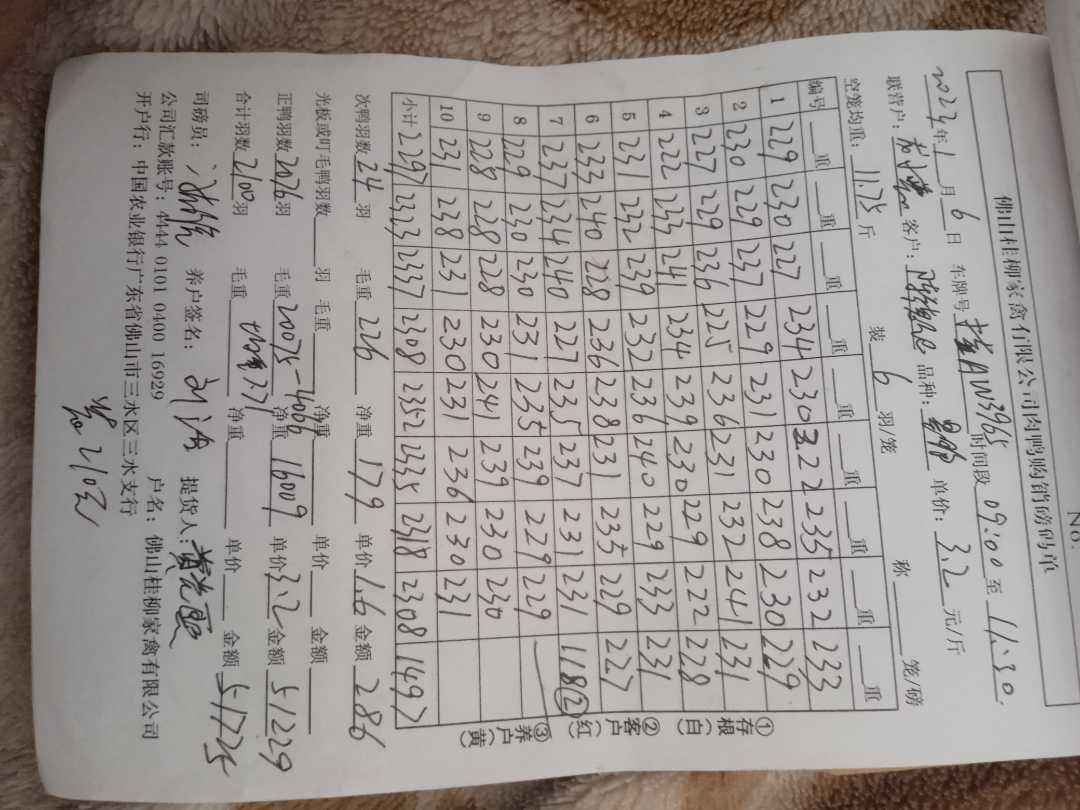 No.
佛山桂柳家禽有限公司肉鸭购销磅码单
2023年1月6日 车牌号 AW3965 时间段 09:00 至 11:30
联营户: 客户: 品种: 单价: 3.2 元/斤
空笼均重: 11.75 斤 装 6 羽笼 称 笼/磅
编号 重 重 重 重 重 重 重 重 重
1 229 230 227 234 230 222 235 232 233
2 230 229 237 229 231 230 238 230 229
3 227 229 236 225 236 231 232 241 231
4 222 233 241 234 239 230 229 222 228
5 231 232 239 232 236 240 229 233 231
6 233 240 228 236 238 231 235 229 227
7 237 234 240 227 235 237 231 231 118②
8 229 230 230 231 235 239 229 229
9 228 228 228 230 241 239 230 230
10 231 238 231 230 231 236 230 231
小计 2297 2323 2337 2308 2352 2335 2318 2308 1497
①存根(白) ②客户(红) ③养户(黄)
次鸭羽数 24 羽 毛重 226 净重 179 单价 1.6 金额 286
光板或叮毛鸭羽数 羽 毛重 净重 单价 金额
正鸭羽数 2076 羽 毛重 20075-4066 净重 16009 单价 3.2 金额 51229
合计羽数 2100 羽 毛重 净重 单价 金额 51725
司磅员: 养户签名: 刘 提货人: 黄
公司汇款账号: 4444 0101 0400 16929 户名: 佛山桂柳家禽有限公司
开户行: 中国农业银行广东省佛山市三水区三水支行
210元